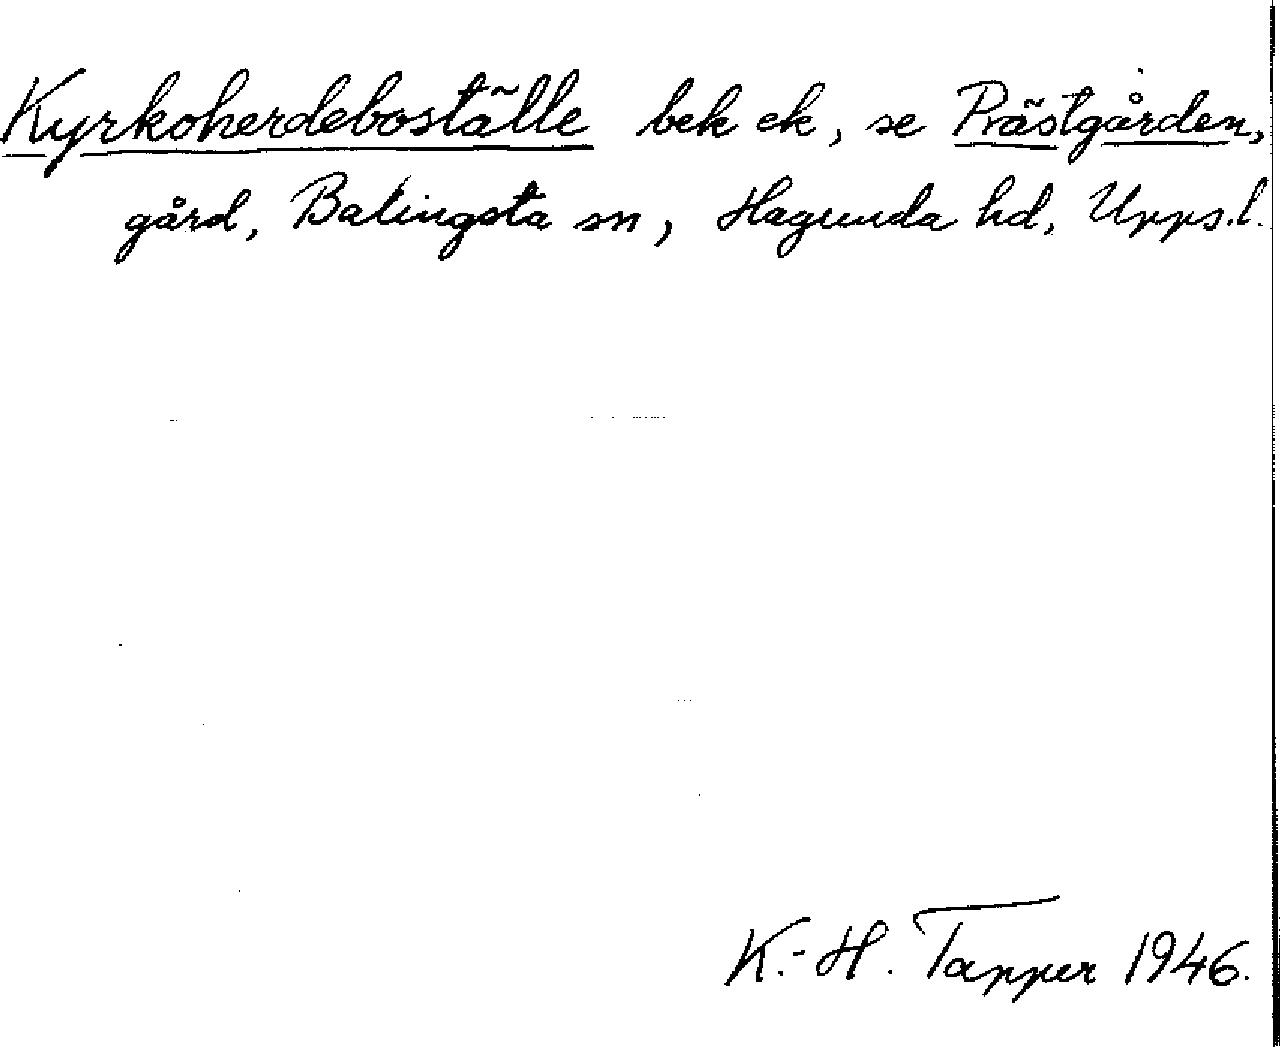 Kyrkoherdeboställe bek ek, se Prästgården,
gård, Balingsta sn, Hagunda hd, Upps.l.
K.-H. Tapper 1946.